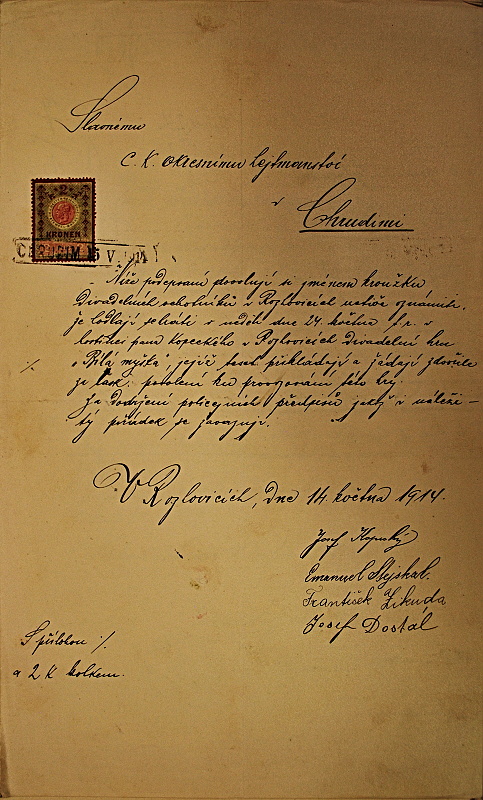 Slavnému
C. K. okresnímu hejtmanství
v
Chrudimi
2
KRONEN
CHRUDIM 15 V. 1914
Níže podepsaní dovolují si jménem kroužku
divadelních ochotníků v Rozhovicích uctivě oznámiti,
že hodlají sehráti v neděli dne 24. května t. r. v
hostinci pana Kopeckého v Rozhovicích divadelní hru
"Bílá myška", jejíž text přikládají a žádají zdvořile
za lask. povolení ku provozování této hry.
Za dodržení policejních předpisů jakož i náleži-
tý pořádek se zaručují.
·/.
V Rozhovicích, dne 14. května 1914.
Josef Kopecký
Emanuel Stejskal.
František Zikuda
Josef Dostál
S přílohou ·/.
a 2 K kolkem.